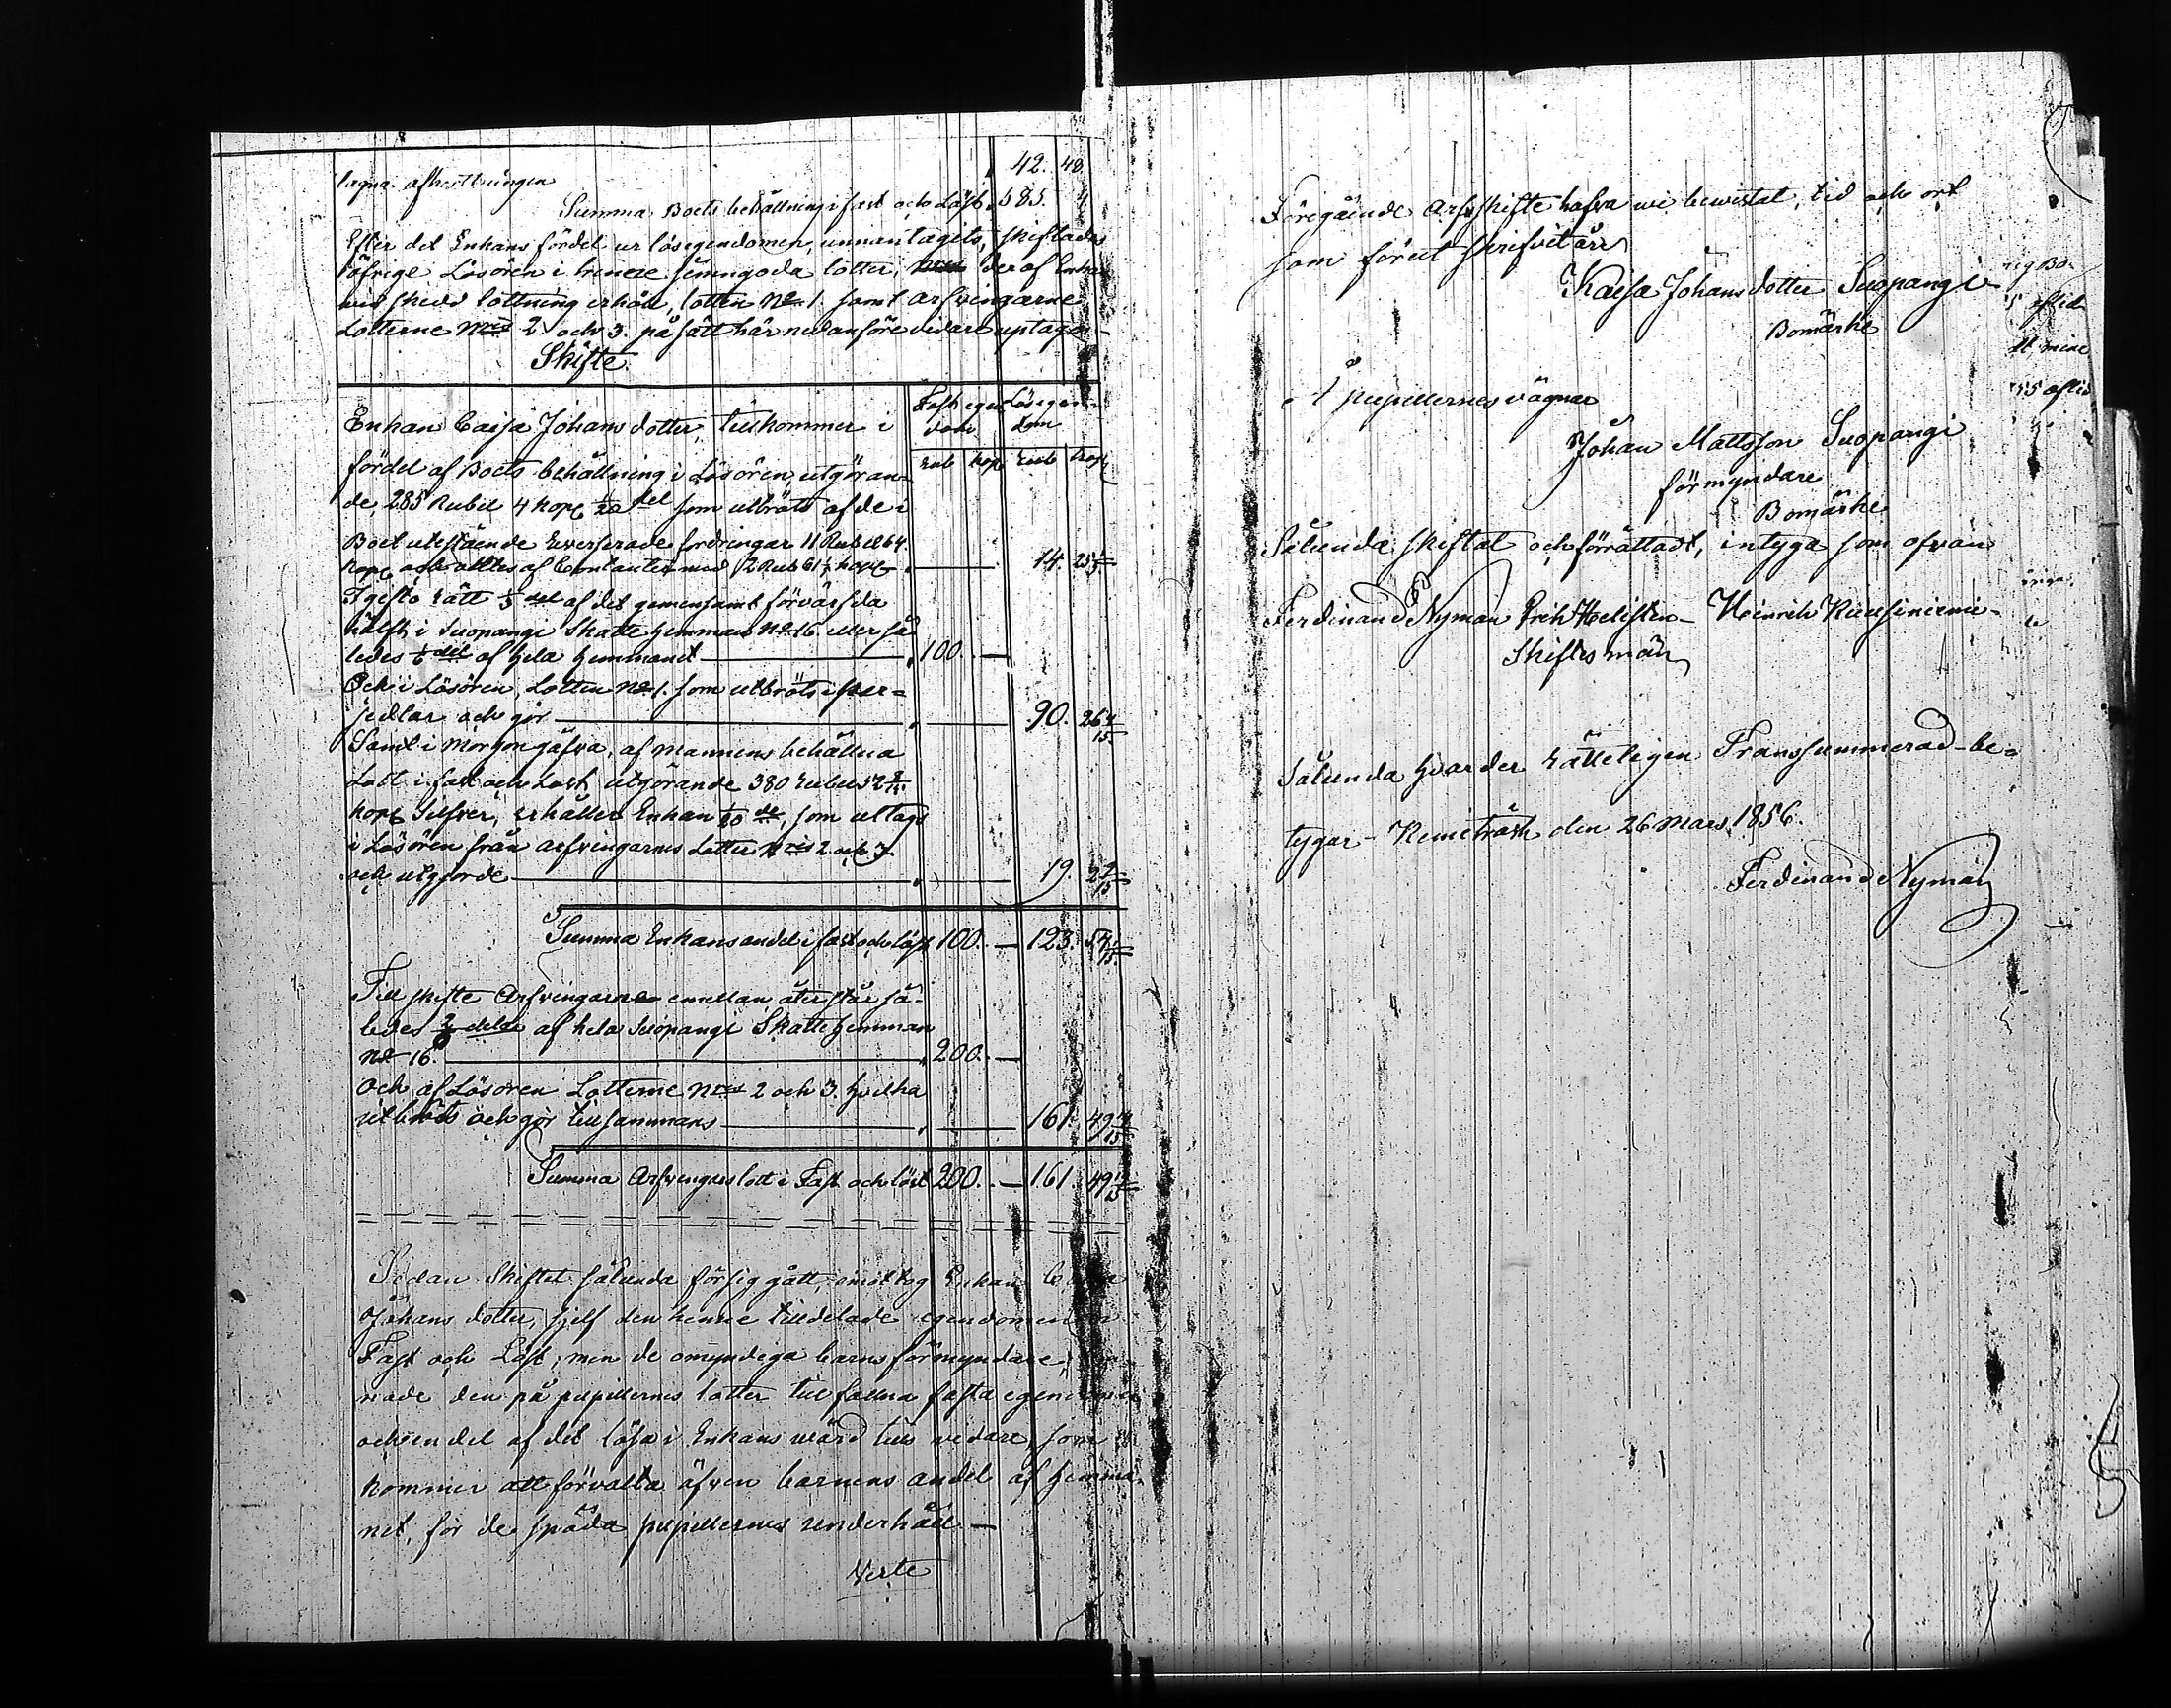 lagna afkortningen 42. 48
Summa Boets behållning i fast och Löst. 585. 4
Efter det Enkans fördel ur lösegendomen, unnantagits, skiftades
öfrige Lösören i trenne jemngoda lotter, deraf Enkan
vid skedd lottning erhöll, lotten No 1. samt arfvingarne
Lotterne N:ris 2. och 3. på sätt här nedanföre vidare uptages
Skifte.
Fast egendom Lösegendom
Enkan Caisa Johansdotter, tillkommer i
Rub kop Rub kop
fördel af Boets behållning i Lösören, utgöran-
de, 285 Rubel 4 kop 1/20 del som utbröts af de i
Boet utestående Reverserade fordringar 11 Rub 64.
kop och alltes af Contanter med 2 Rub 61 1/5 kop 14. 25 1/5
Tgifto rätt 1/3 del af det gemensamt förvärfda
hälft i Suopangi Skatte hemman No 16. eller så-
ledes 1/6 del af hela hemmanet 100. —
Och i Lösören, Lotten No 1. som utbröts i per-
sedlar och gör 90. 26 4/15
Samt i Morgongåfva, af mannens behållna
Lott i fast och Löst, utgörande 380 Rubel 52
kop Silfver, erhåller Enkan 1/20 de, som uttags
i Lösören från arfvingarnes Lotter N:ris 2. och 3
och utgjorde 19. 2 9/15
Summa Enkans andel i fast och löst 100. — 123. 54 1/15
Till skifte Arfvingarne emellan återstår så-
ledes 2/6 delar af hela Suopangi Skattehemman
No 16. 200. —
Och af Lösören Lotterne N:ris 2 och 3. hvilka
utbröts och gör tillsammans 161. 49 14/15
Summa Arfvingars lott i Fast och löst 200. — 161. 49 14/15
Sedan Skiftet sålunda försiggått, emottog Enkan
Johansdotter, sjelf den henne tilldelade egendomen i
Fast och Löst; men de omyndiga barns förmyndare,
nade den på pupillernes lotter tillfallna fasta egendomen
och en del af det lösa i Enkans vård tills vidare, som
kommer att förvalta äfven barnens andel af hemma-
net, för de späda pupillernes underhåll. —
Verte
Föregående Arfskifte hafva vi bevistat, tid och ort
som förut skrifvit äro
Kaisa Johansdotter Suopangi
Bomärke
À pupillernes vägnar
Johan Mattsson Suopangi
förmyndare
Bomärke
Sålunda skiftat och förrättadt, intyga som ofvan
Ferdinand Nyman Erik Helisten Heinrik Ruusiniemi
Skiftesmän
Sålunda hvarder rätteligen Transsummerad be-
tygar. Kemiträsk den 26 Mars 1856.
Ferdinand Nyman